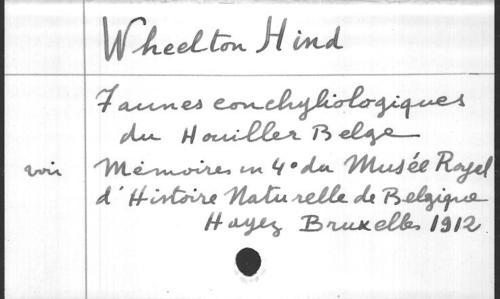 Wheelton Hind
Faunes conchyliologiques
du Houiller Belge
voir Mémoires in 4° du Musée Royal
d'Histoire Naturelle de Belgique
Hayez Bruxelles 1912